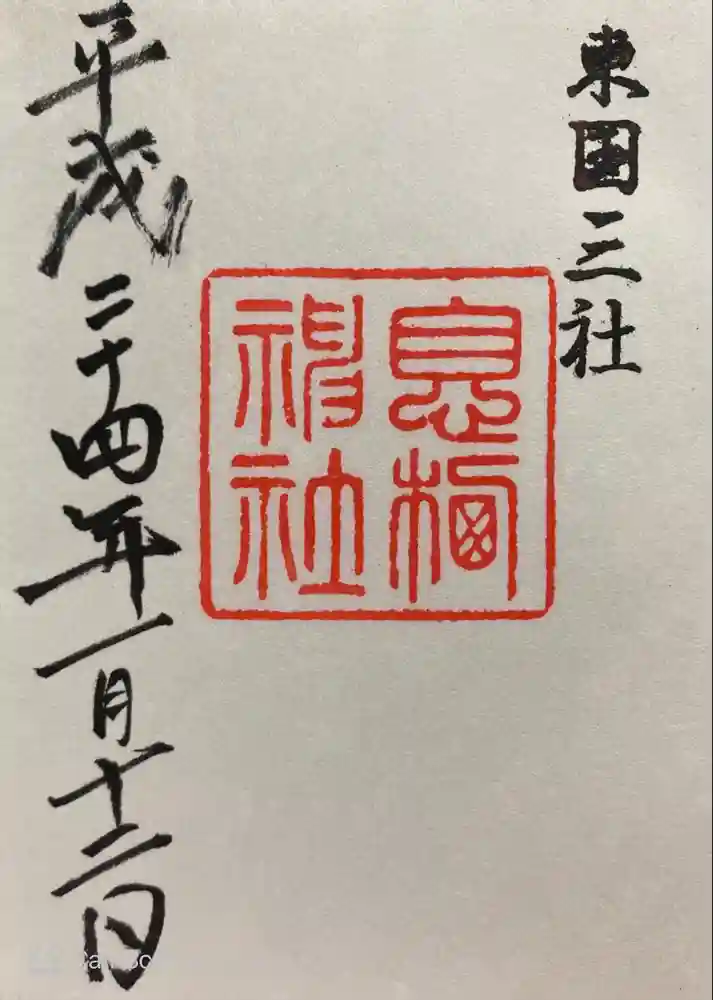 東国三社
息栖
神社
平成二十四年一月十二日